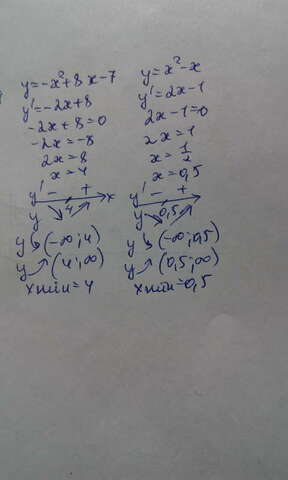 y=-x²+8x-7
y'=-2x+8
-2x+8=0
-2x=-8
2x=8
x=4
y' - + x
y ↘ 4 ↗
y ↘ (-∞;4)
y ↗ (4;∞)
xмин=4
y=x²-x
y'=2x-1
2x-1=0
2x=1
x=1/2
x=0,5
y' - +
y ↘ 0,5 ↗
y ↘ (-∞;0,5)
y ↗ (0,5;∞)
xмин=0,5